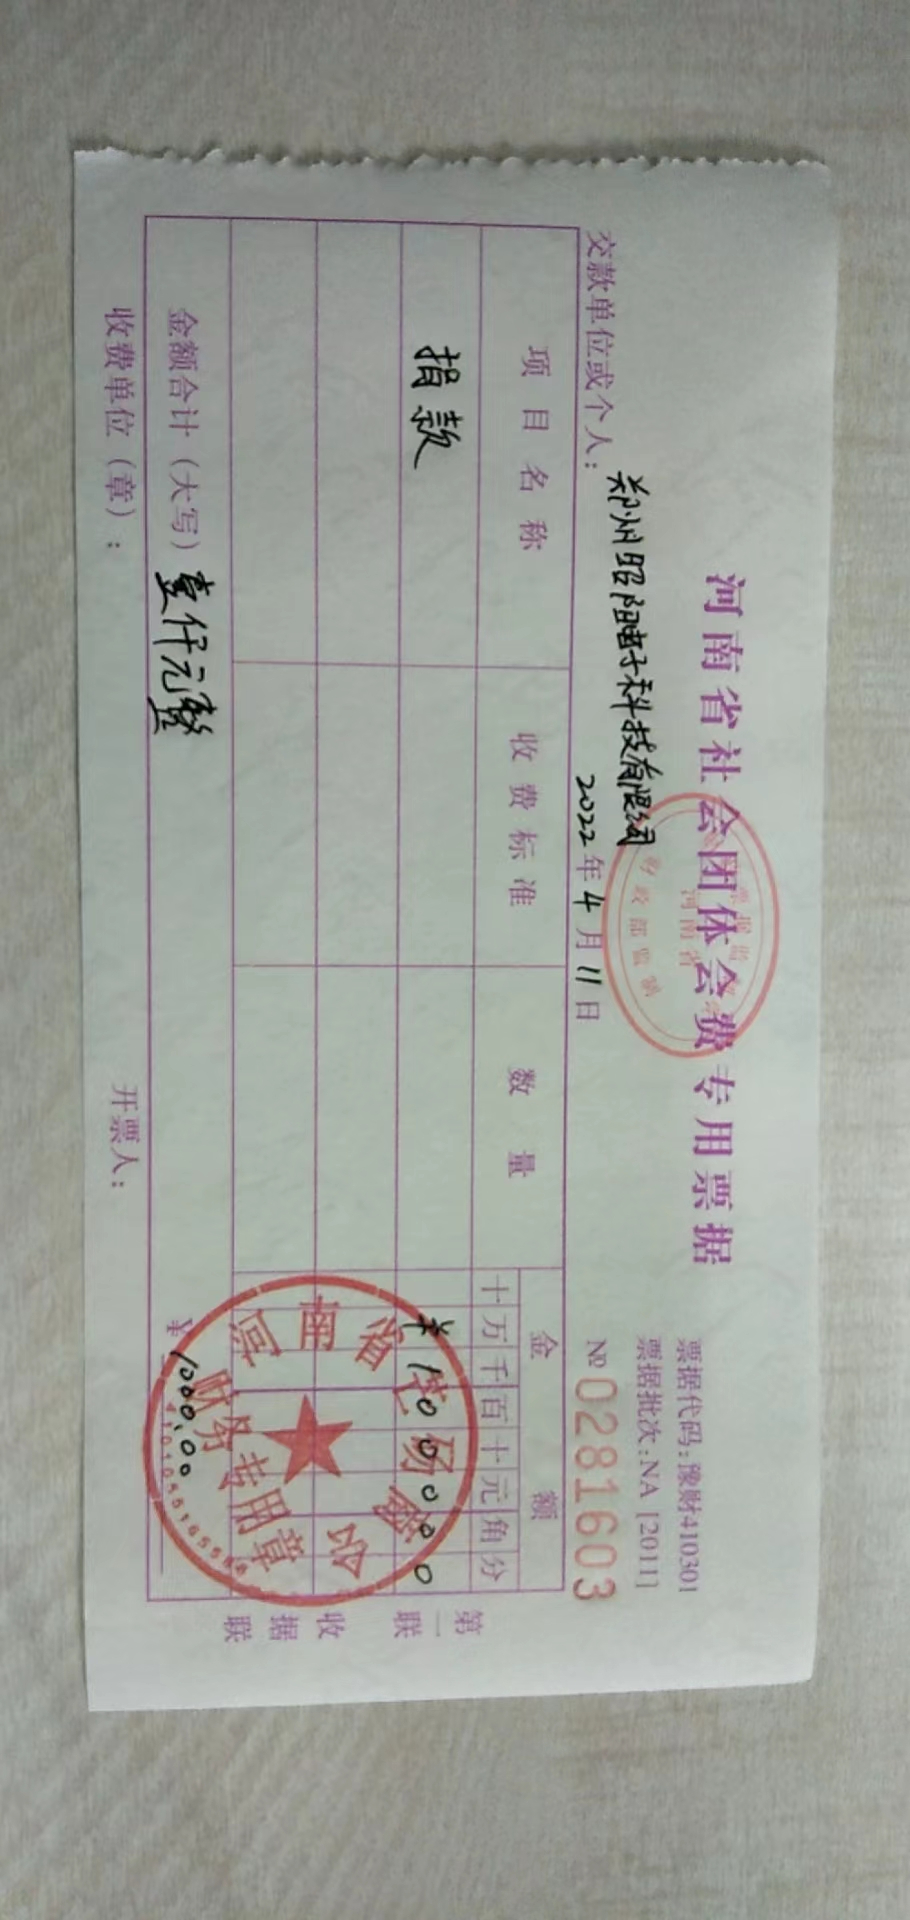 河南省社会团体会费专用票据
票据代码:豫财410301
票据批次:NA [2011]
№ 0281603
河南省
财政部监制
交款单位或个人：郑州昭阳电子科技有限公司
2022年4月11日
项目名称 收费标准 数量 金额
十万千百十元角分
捐款 ¥100000
金额合计（大写）壹仟元整 ¥1000.00
收费单位（章）： 开票人：
第二联
收据联
河南省
财务专用章